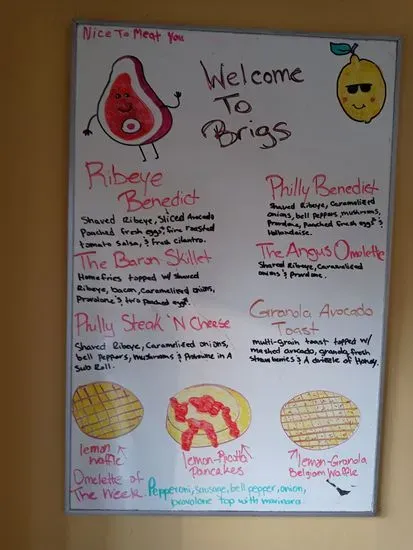 Nice To Meat You
Welcome
To
Brigs
Ribeye
Benedict
Shaved Ribeye, Sliced Avocado
Poached fresh eggs, fire roasted
tomato Salsa, & fresh Cilantro.
The Baron Skillet
Homefries topped w/ shaved
Ribeye, bacon, caramelized onions,
Provolone & two poached eggs.
Philly Steak 'N Cheese
Shaved Ribeye, Caramelized onions,
bell Peppers, mushrooms & Provolone in A
Sub Roll.
Philly Benedict
Shaved Ribeye, Caramelized
onions, bell peppers, mushrooms,
Provolone, Poached fresh eggs &
Hollandaise.
The Angus Omelette
Shaved Ribeye, Caramelized
onions & Provolone.
Granola Avocado
Toast
multi-Grain toast topped w/
mashed avocado, granola, fresh
strawberries & A drizzle of Honey.
lemon
Waffle
lemon-Ricotta
Pancakes
lemon-Granola
Belgium Waffle
Omelette of
The Week.
Pepperoni, sausage, bell pepper, onion,
provolone top with marinara